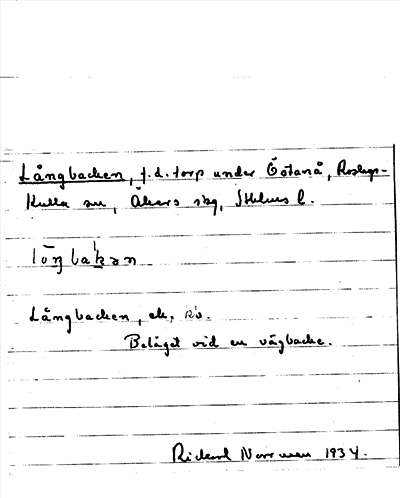 Långbacken, f.d. torp under Östanå, Roslags-
Kulla sn, Åkers skg, Sthlms l.
Långbacken, ek,
Beläget vid en vägbacke.
Rickard Norrman 1934.